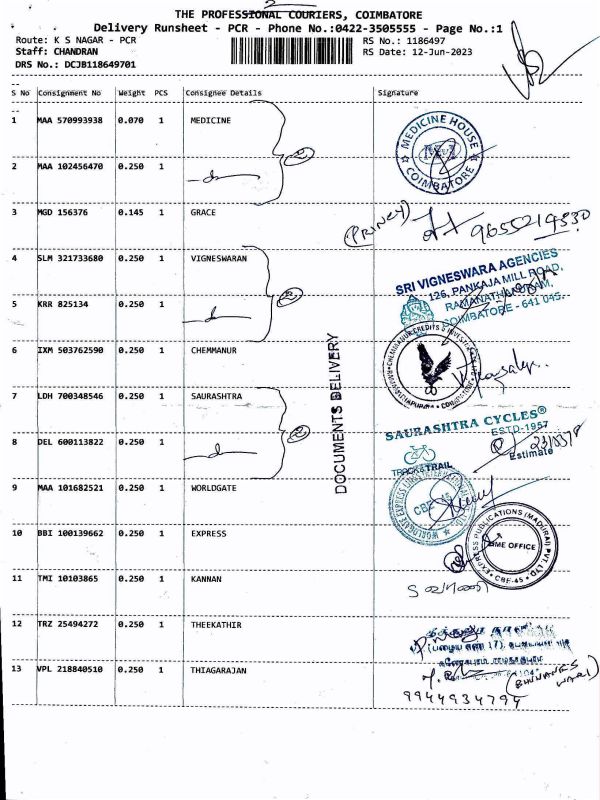 2
THE PROFESSIONAL COURIERS, COIMBATORE
Delivery Runsheet - PCR - Phone No.:0422-3505555 - Page No.:1
Route: K S NAGAR - PCR
RS No.: 1186497
Staff: CHANDRAN
RS Date: 12-Jun-2023
DRS No.: DCJB118649701
S No Consignment No Weight PCS Consignee Details Signature
1 MAA 570993938 0.070 1 MEDICINE
MEDICINE HOUSE
COIMBATORE
2 MAA 102456470 0.250 1
2
3 MGD 156376 0.145 1 GRACE
(PRINCY) 9655219330
4 SLM 321733680 0.250 1 VIGNESWARAN
SRI VIGNESWARA AGENCIES
126, PANKAJA MILL ROAD,
RAMANATHAPURAM,
COIMBATORE - 641 045.
5 KRR 825134 0.250 1
2
6 IXM 503762590 0.250 1 CHEMMANUR
CHEMMANUR CREDITS & INVESTMENTS
DOCUMENTS DELIVERY
7 LDH 700348546 0.250 1 SAURASHTRA
SAURASHTRA CYCLES®
ESTD-1957
Estimate
8 DEL 600113822 0.250 1
2
TRACK&TRAIL
9 MAA 101682521 0.250 1 WORLDGATE
WORLDGATE EXPRESS LINES INTERNATIONAL
CBE-45
10 BBI 100139662 0.250 1 EXPRESS
EXPRESS PUBLICATIONS (MADURAI) PVT. LTD
HOME OFFICE
CBE-45
11 TMI 10103865 0.250 1 KANNAN
12 TRZ 25494272 0.250 1 THEEKATHIR
13 VPL 218840510 0.250 1 THIAGARAJAN
(BHUVANES
WARI)
9944934794